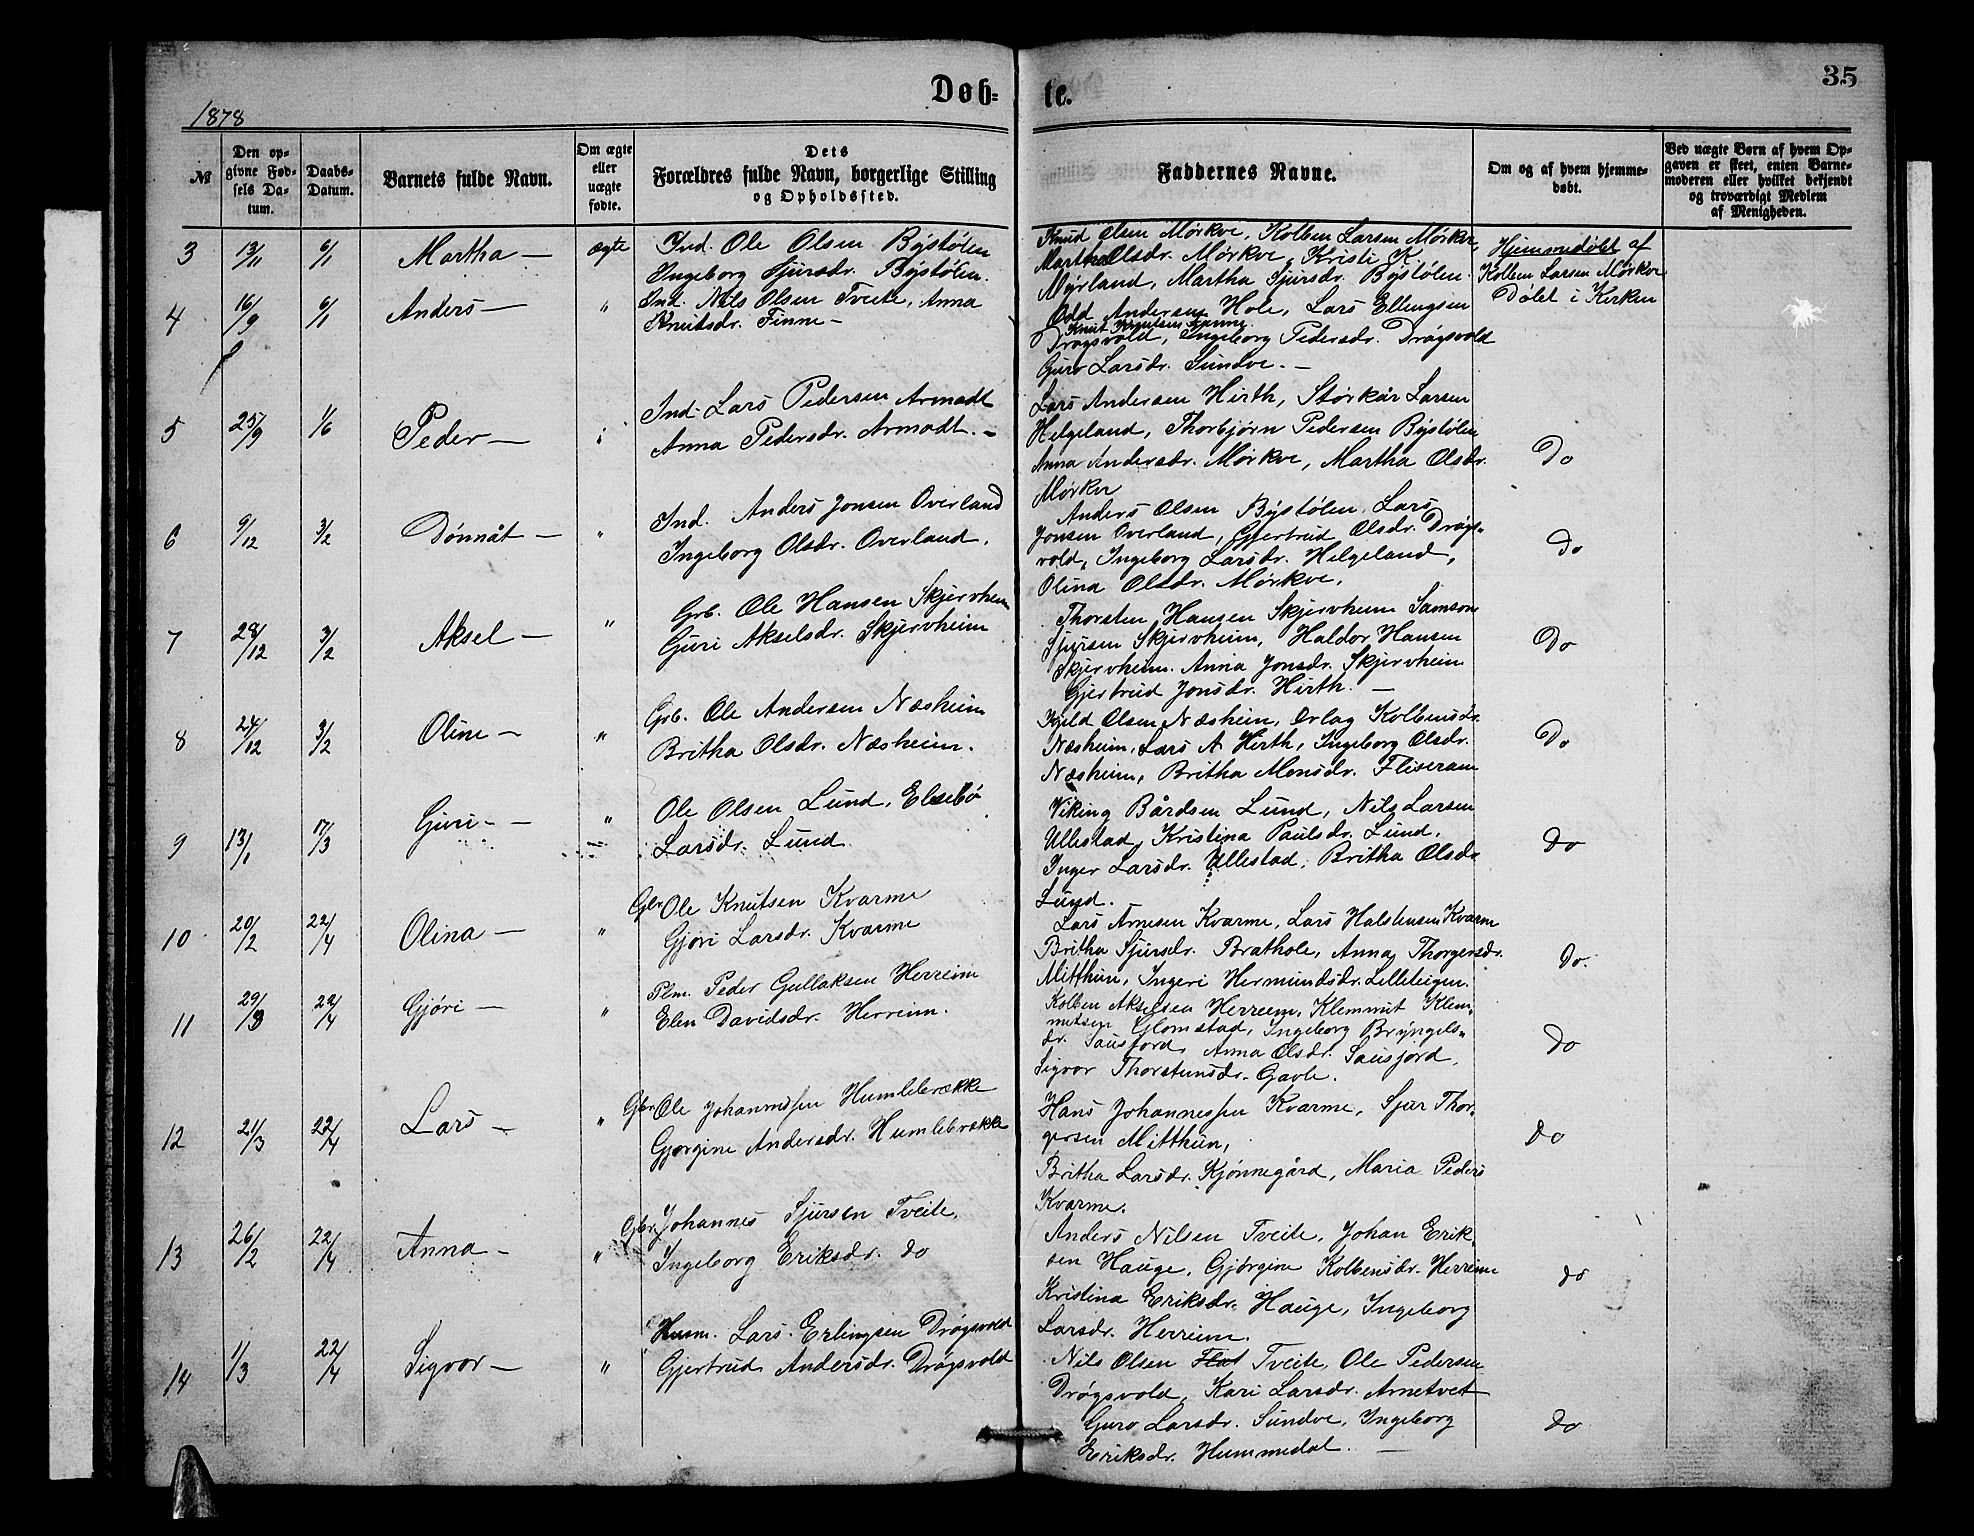 1878
Døb-
te.
35
№
Den op-
givne Fød-
sels Da-
tum.
Daabs-
Datum.
Barnets fulde Navn.
Om ægte
eller
uægte
fødte.
Dets
Forældres fulde Navn, borgerlige Stilling
og Opholdssted.
Faddernes Navne.
Om og af hvem hjemme-
døbt.
Ved uægte Børn af hvem Op-
gaven er skeet, enten Barne-
moderen eller hvilket bekjendt
og troværdigt Medlem
af Menigheden.
3 13/11 6/1 Martha — ægte
Ind. Ole Olsen Bystølen
Ingeborg Sjursdr. Bystølen.
Knud Olsen Mørkve, Kolben Larsen Mørkve,
Martha Olsdr. Mørkve, Kristi K.
Myrland, Martha Sjursdr. Bystølen.
Hjemmedøbt af
Kolben Larsen Mørkve
Døbt i Kirken
4 16/9 6/1 Anders — "
Ind. Nils Olsen Tveite, Anna
Knutsdr. Finne —
Odd Andersen Hole, Lars Ellingsen
Knut Knutsen Finne
Drøgsvold, Ingeborg Pedersdr. Drøgsvold
Guro Larsdr. Sundve. —
5 25/9 1/6 Peder —
Ind. Lars Pedersen Armodt
Anna Pedersdr. Armodt. —
Lars Andersen Hirth, Størkår Larsen
Helgeland, Thorbjørn Pedersen Bystølen
Anna Andersdr. Mørkve, Martha Olsdr.
Mørkve
Do
6 9/12 3/2 Dønnåt — "
Ind. Anders Jonsen Overland
Ingeborg Olsdr. Overland.
Anders Olsen Bystølen, Lars
Jonsen Overland, Gjertrud Olsdr. Drøgs-
vold, Ingeborg Larsdr. Helgeland,
Olina Olsdr. Mørkve.
do
7 28/12 3/2 Aksel — "
Grb. Ole Hansen Skjervheim
Guri Akselsdr. Skjervheim
Thorsten Hansen Skjervheim Samson
Sjursen Skjervheim, Haldor Hansen
Skjervheim. Anna Jonsdr. Skjervheim
Gjertrud Jonsdr. Hirth. —
Do
8 24/12 3/2 Oline — "
Grb. Ole Andersen Næsheim
Britha Olsdr. Næsheim.
Kjeld Olsen Næsheim, Orlag Kolbensdr.
Næsheim, Lars A Hirth, Ingeborg Olsdr.
Næsheim, Britha Monsdr. Fliseram
Do
9 13/1 17/3 Guri — "
Ole Olsen Lund, Elsebø
Larsdr. Lund
Viking Bårdsen Lund, Nils Larsen
Ullestad, Kristina Paulsdr. Lund.
Inger Larsdr. Ullestad, Britha Olsdr
Lund.
do
10 20/2 22/4 Olina — "
Gbr Ole Knutsen Kvarme
Gjøri Larsdr. Kvarme
Lars Arnesen Kvarme, Lars Halstensen Kvarme
Britha Sjursdr. Brathole, Anna Thorgersdr.
Mitthun, Ingeri Hermundsdr. Lilleteigen.
do.
11 29/3 22/4 Gjøri — "
Plm. Peder Gullaksen Herreim
Elen Davidsdr. Herreim.
Kolben Akselsen Herreem, Klemmit Klem-
metsen Glomstad, Ingeborg Bryngels-
dr. Sausjord, Anna Olsdr. Sausjord,
Sigvor Thorstensdr. Gavle.
do
12 21/3 22/4 Lars — "
Gbr Ole Johannessen Humlebrække
Gjørgine Andersdr. Humlebrække
Hans Johannessen Kvarme, Sjur Thor-
gersen Mitthun,
Britha Larsdr. Kjønnegård, Maria Peders
Kvarme.
do
13 26/2 22/4 Anna — "
Gbr Johannes Sjursen Tveite,
Ingeborg Eriksdr. do
Anders Nilsen Tveite, Johan Erik-
sen Hauge, Gjørgine Kolbensdr. Herreim
Kristina Eriksdr. Hauge, Ingeborg
Larsdr. Herreim.
do
14 1/3 22/4 Sigvor — "
Husm. Lars Erlingsen Drøgsvold
Gjertrud Andersdr. Drøgsvold
Nils Olsen Flat Tveite, Ole Pedersen
Drøgsvold, Kari Larsdr. Arnetvet
Guro Larsdr. Sundve, Ingeborg
Eriksdr. Hummedal. —
do